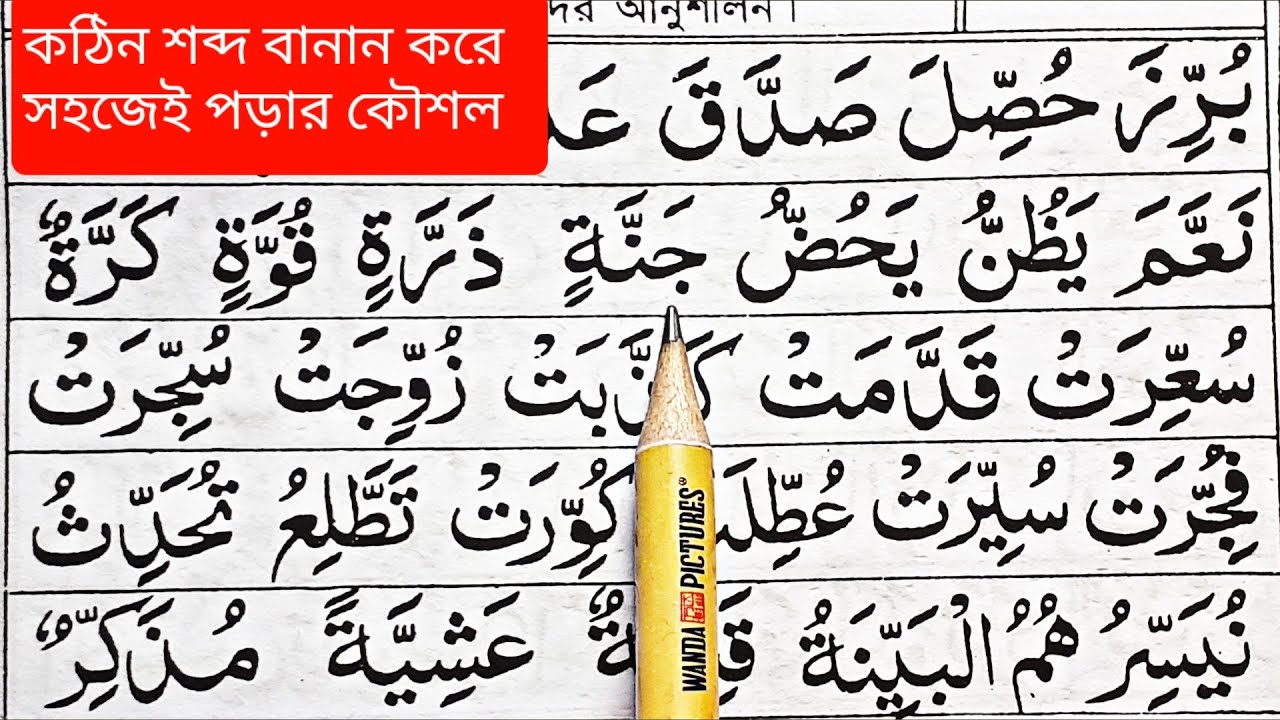 দের অনুশীলন।
কঠিন শব্দ বানান করে
সহজেই পড়ার কৌশল
بُرِّزَ حُصِّلَ صَدَّقَ
نَعَّمَ يَظُنُّ يَحُضُّ جَنَّةٍ ذَرَّةٍ قُوَّةٍ كَرَّةٌ
سُعِّرَتْ قَدَّمَتْ كَذَّبَتْ زُوِّجَتْ سُجِّرَتْ
فُجِّرَتْ سُيِّرَتْ عُطِّلَتْ كُوِّرَتْ تَطَّلِعُ تُحَدِّثُ
نُيَسِّرُ هُمُ الْبَيِّنَةُ عَشِيَّةً مُذَكِّرٌ
WANDA PICTURES